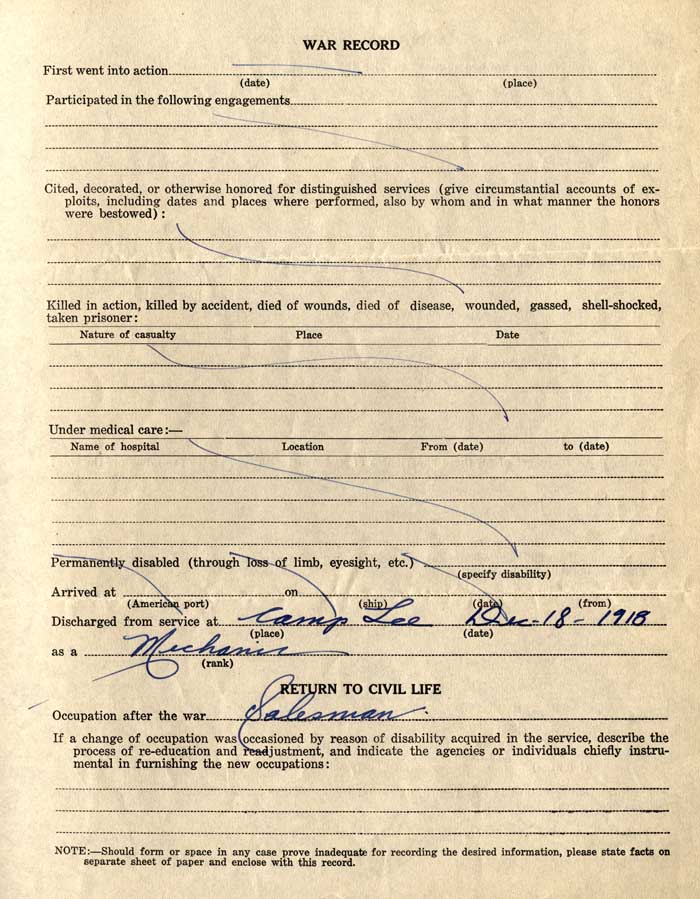 WAR RECORD
First went into action
(date) (place)
Participated in the following engagements
Cited, decorated, or otherwise honored for distinguished services (give circumstantial accounts of ex-
ploits, including dates and places where performed, also by whom and in what manner the honors
were bestowed) :
Killed in action, killed by accident, died of wounds, died of disease, wounded, gassed, shell-shocked,
taken prisoner:
Nature of casualty Place Date
Under medical care:—
Name of hospital Location From (date) to (date)
Permanently disabled (through loss of limb, eyesight, etc.)
(specify disability)
Arrived at on
(American port) (ship) (date) (from)
Discharged from service at Camp Lee Dec-18-1918
(place) (date)
as a Mechanic
(rank)
RETURN TO CIVIL LIFE
Occupation after the war Salesman.
If a change of occupation was occasioned by reason of disability acquired in the service, describe the
process of re-education and readjustment, and indicate the agencies or individuals chiefly instru-
mental in furnishing the new occupations:
NOTE:—Should form or space in any case prove inadequate for recording the desired information, please state facts on
separate sheet of paper and enclose with this record.